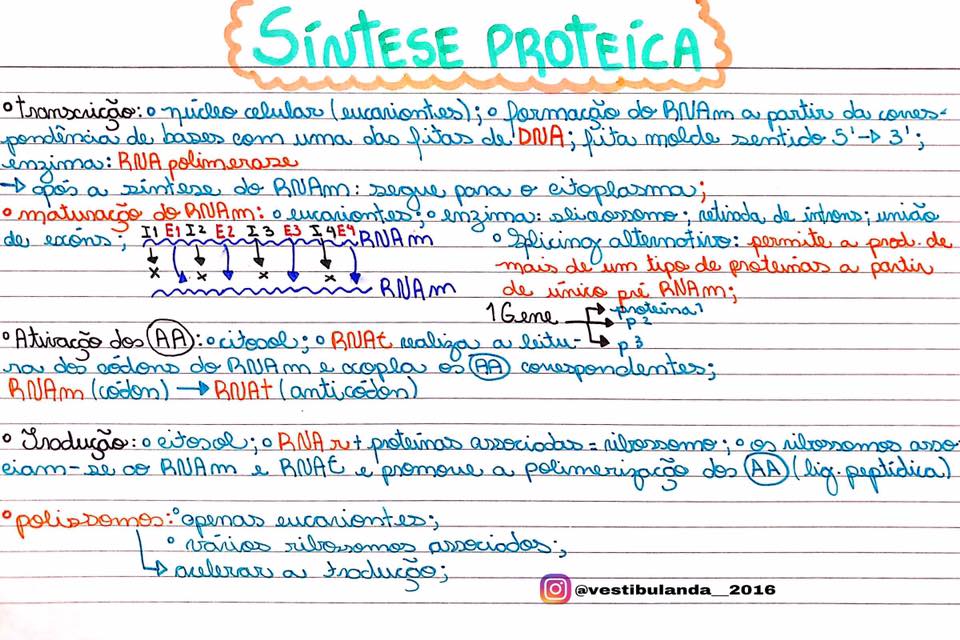 SÍNTESE PROTEICA
° transcrição: ° núcleo celular (eucariontes); ° formação do RNAm a partir da corres-
pondência de bases com uma das fitas de DNA; fita molde sentido 5' → 3';
enzima: RNA polimerase
→ após a síntese do RNAm: segue para o citoplasma;
° maturação do RNAm: ° eucariontes; ° enzima: slicossomo; retirada de íntrons; união
de exóns;
I1 E1 I2 E2 I3 E3 I4 E4 RNAm
x x x x
RNAm
° Splicing alternativo: permite a prod. de
mais de um tipo de proteínas a partir
de único pré RNAm;
1 Gene → proteína 1
p 2
p 3
° Ativação dos AA: ° citosol; ° RNAt realiza a leitu-
ra dos códons do RNAm e acopla os AA correspondentes;
RNAm (códon) → RNAt (anticódon)
° Tradução: ° citosol; ° RNA r + proteínas associadas = ribossomo; ° os ribossomos asso-
ciam-se ao RNAm e RNAt e promove a polimerização dos AA (lig. peptídica)
° polissomos: ° apenas eucariontes;
° vários ribossomos associados;
→ acelerar a tradução;
@vestibulanda__2016